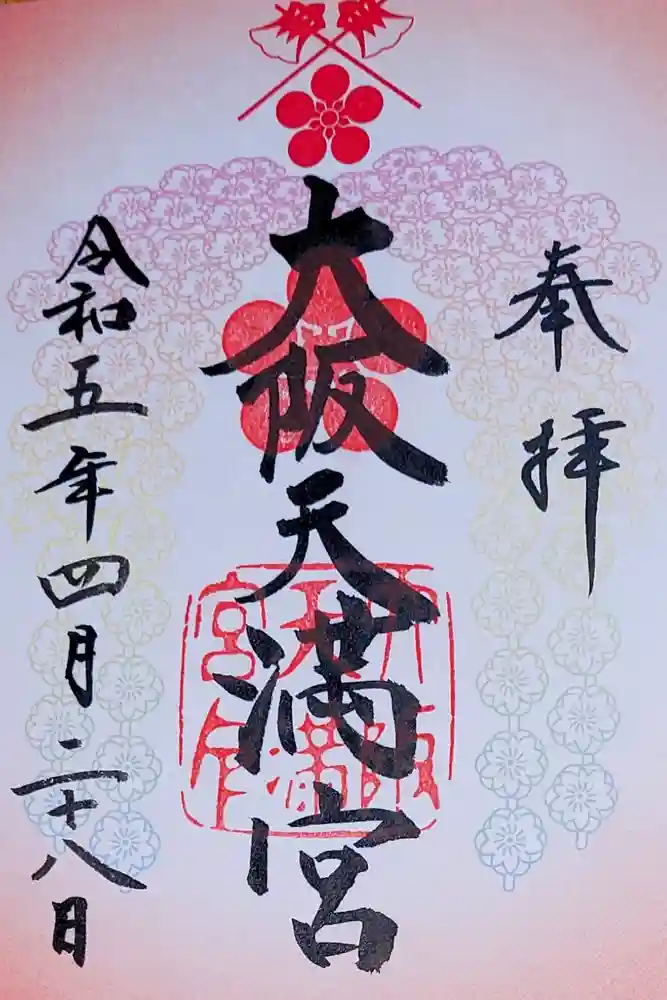 奉拝
大阪天満宮
令和五年四月二十八日